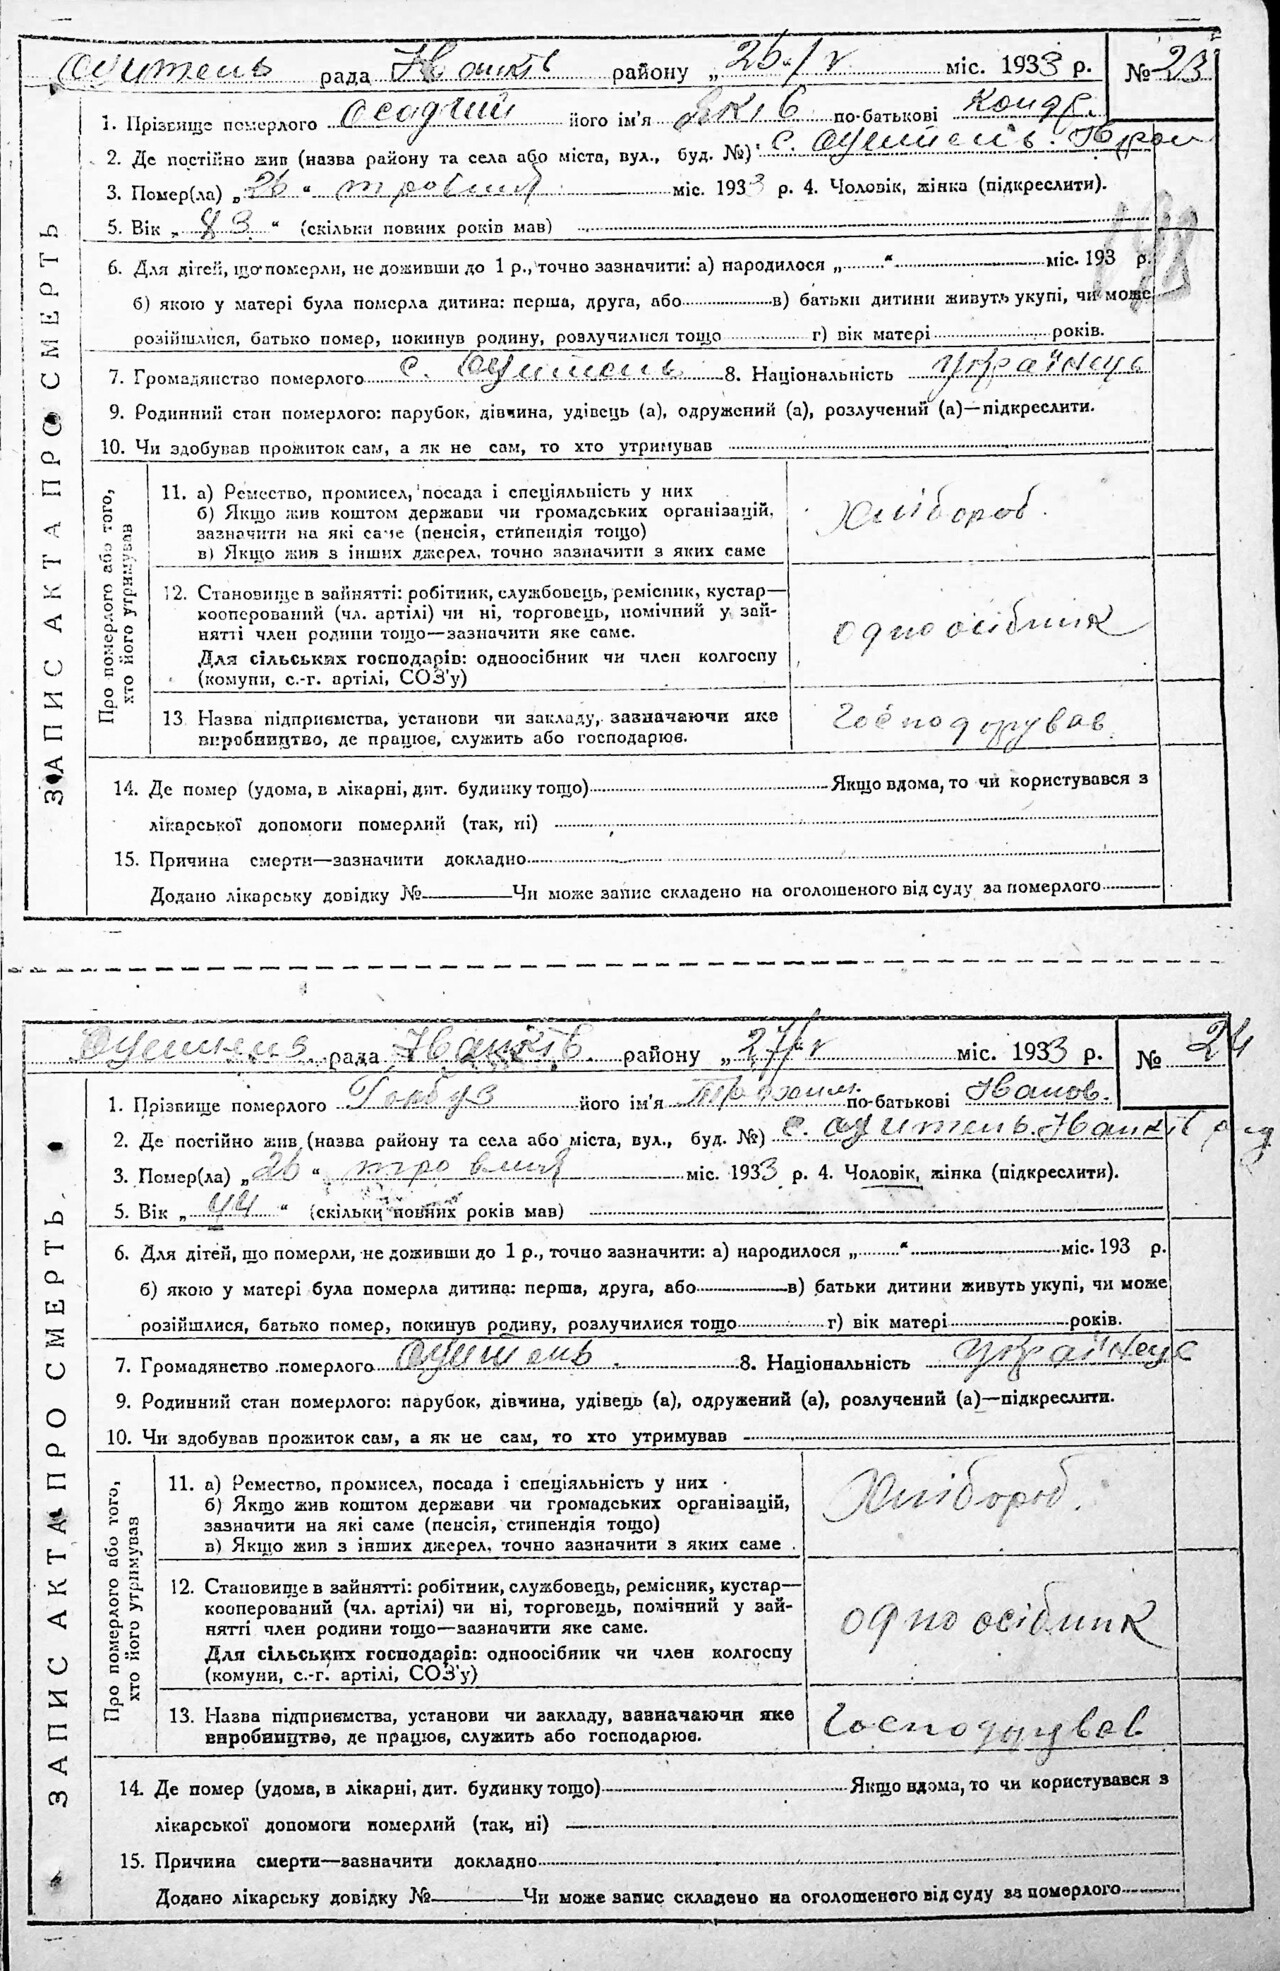 Оцитель рада Іванків району „26/V міс. 1933 р. № 23
1. Прізвище померлого Осадчий його ім'я Яків по-батькові Кондр.
2. Де постійно жив (назва району та села або міста, вул., буд. №) с. Оцитель
3. Помер(ла) „26“ травня міс. 1933 р. 4. Чоловік, жінка (підкреслити).
5. Вік „ “ (скільки повних років мав)
6. Для дітей, що померли, не доживши до 1 р., точно зазначити: а) народилося „ “ міс. 193 р.
б) якою у матері була померла дитина: перша, друга, або в) батьки дитини живуть укупі, чи може
розійшлися, батько помер, покинув родину, розлучилися тощо г) вік матері років.
7. Громадянство померлого с. Оцитель 8. Національність українець
9. Родинний стан померлого: парубок, дівчина, удівець (а), одружений (а), розлучений (а)—підкреслити.
10. Чи здобував прожиток сам, а як не сам, то хто утримував
ЗАПИС АКТА ПРО СМЕРТЬ
Про померлого або того,
хто його утримував
11. а) Ремество, промисел, посада і спеціяльність у них
б) Якщо жив коштом держави чи громадських організацій,
зазначити на які саме (пенсія, стипендія тощо)
в) Якщо жив з інших джерел, точно зазначити з яких саме
Хлібороб.
12. Становище в зайнятті: робітник, службовець, ремісник, кустар—
кооперований (чл. артілі) чи ні, торговець, помічний у зай-
нятті член родини тощо—зазначити яке саме.
Для сільських господарів: одноосібник чи член колгоспу
(комуни, с.-г. артілі, СОЗ'у)
одноосібник
13. Назва підприємства, установи чи закладу, зазначаючи яке
виробництво, де працює, служить або господарює.
Господарував
14. Де помер (удома, в лікарні, дит. будинку тощо) Якщо вдома, то чи користувався з
лікарської допомоги померлий (так, ні)
15. Причина смерти—зазначити докладно
Додано лікарську довідку № Чи може запис складено на оголошеного від суду за померлого
Оцитель рада Іванків. району „27/V міс. 1933 р. № 24
1. Прізвище померлого Гарбуз його ім'я Трохим по-батькові Іванов.
2. Де постійно жив (назва району та села або міста, вул., буд. №) с. Оцитель Іванків
3. Помер(ла) „26“ травня міс. 1933 р. 4. Чоловік, жінка (підкреслити).
5. Вік „44“ (скільки повних років мав)
6. Для дітей, що померли, не доживши до 1 р., точно зазначити: а) народилося „ “ міс. 193 р.
б) якою у матері була померла дитина: перша, друга, або в) батьки дитини живуть укупі, чи може
розійшлися, батько помер, покинув родину, розлучилися тощо г) вік матері років.
7. Громадянство померлого Оцитель. 8. Національність українець
9. Родинний стан померлого: парубок, дівчина, удівець (а), одружений (а), розлучений (а)—підкреслити.
10. Чи здобував прожиток сам, а як не сам, то хто утримував
ЗАПИС АКТА ПРО СМЕРТЬ
Про померлого або того,
хто його утримував
11. а) Ремество, промисел, посада і спеціяльність у них
б) Якщо жив коштом держави чи громадських організацій,
зазначити на які саме (пенсія, стипендія тощо)
в) Якщо жив з інших джерел, точно зазначити з яких саме
Хлібороб.
12. Становище в зайнятті: робітник, службовець, ремісник, кустар—
кооперований (чл. артілі) чи ні, торговець, помічний у зай-
нятті член родини тощо—зазначити яке саме.
Для сільських господарів: одноосібник чи член колгоспу
(комуни, с.-г. артілі, СОЗ'у)
одноосібник
13. Назва підприємства, установи чи закладу, зазначаючи яке
виробництво, де працює, служить або господарює.
Господарував
14. Де помер (удома, в лікарні, дит. будинку тощо) Якщо вдома, то чи користувався з
лікарської допомоги померлий (так, ні)
15. Причина смерти—зазначити докладно
Додано лікарську довідку № Чи може запис складено на оголошеного від суду за померлого